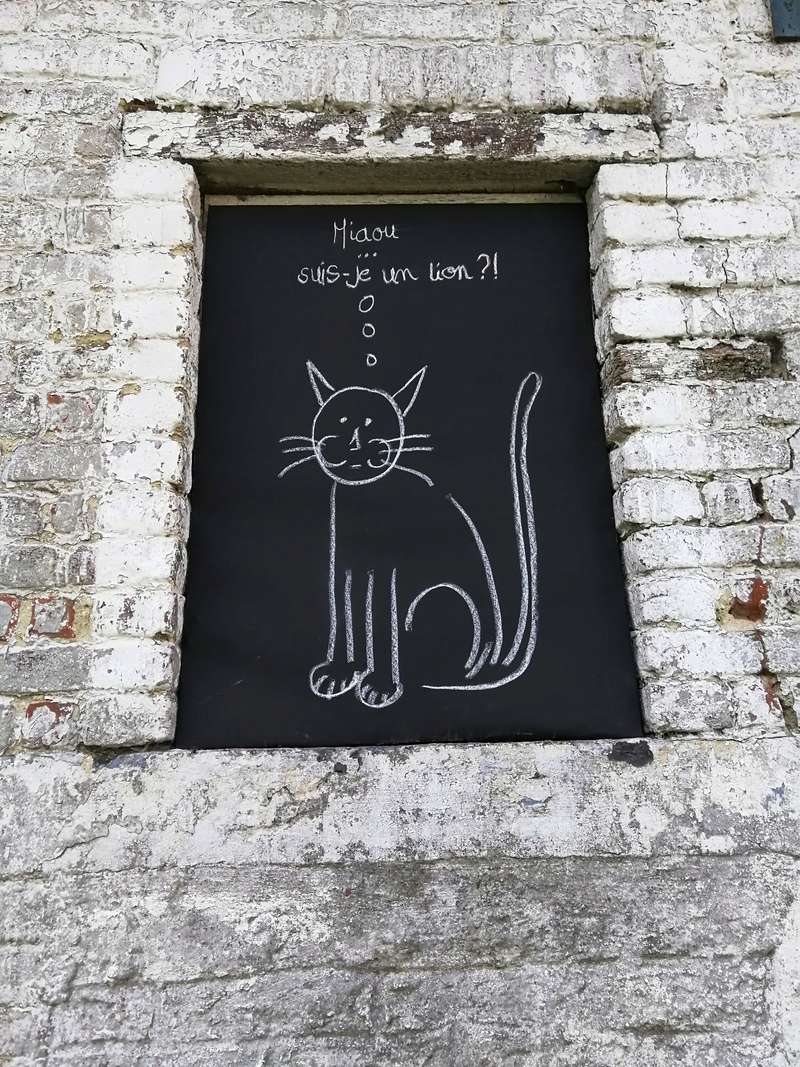 Miaou
...
suis-je un lion ?!